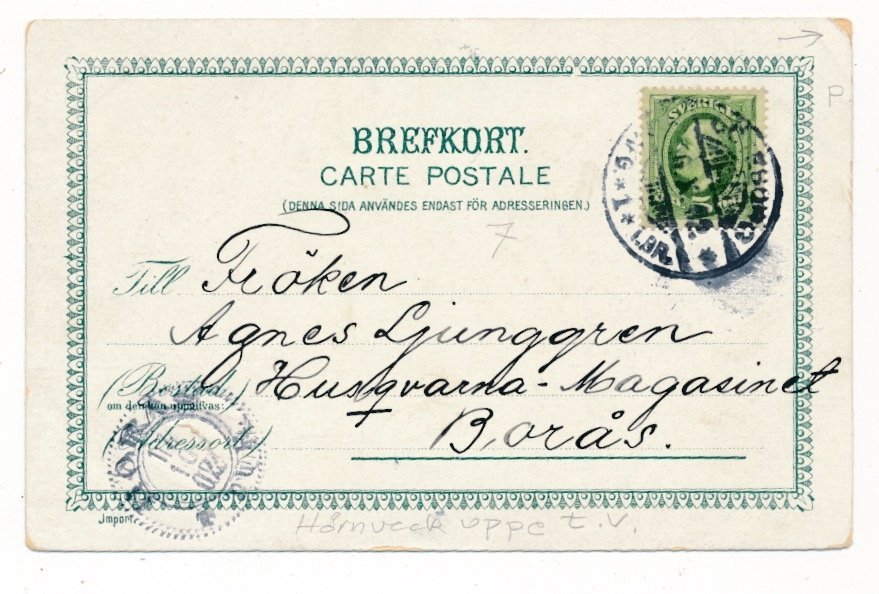 BREFKORT.
CARTE POSTALE
(DENNA SIDA ANVÄNDES ENDAST FÖR ADRESSERINGEN.)
7
P
Till Fröken
Agnes Ljunggren
(Bostad)
om den kan uppgifvas:
Husqvarna-Magasinet
(Adressort)
Borås.
SVERIGE
1
LBR.
Import.
Hörnveck uppe t.v.